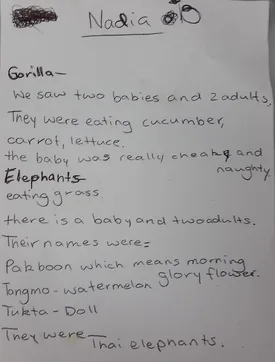 Nadia B
Gorilla-
We saw two babies and 2 adults,
They were eating cucumber,
carrot, lettuce.
the baby was really cheaky and
naughty
Elephants
eating grass
there is a baby and two adults.
Their names were=
Pakboon which means morning
glory flower.
Tongmo - watermelon
Tukta - Doll
They were Thai elephants.